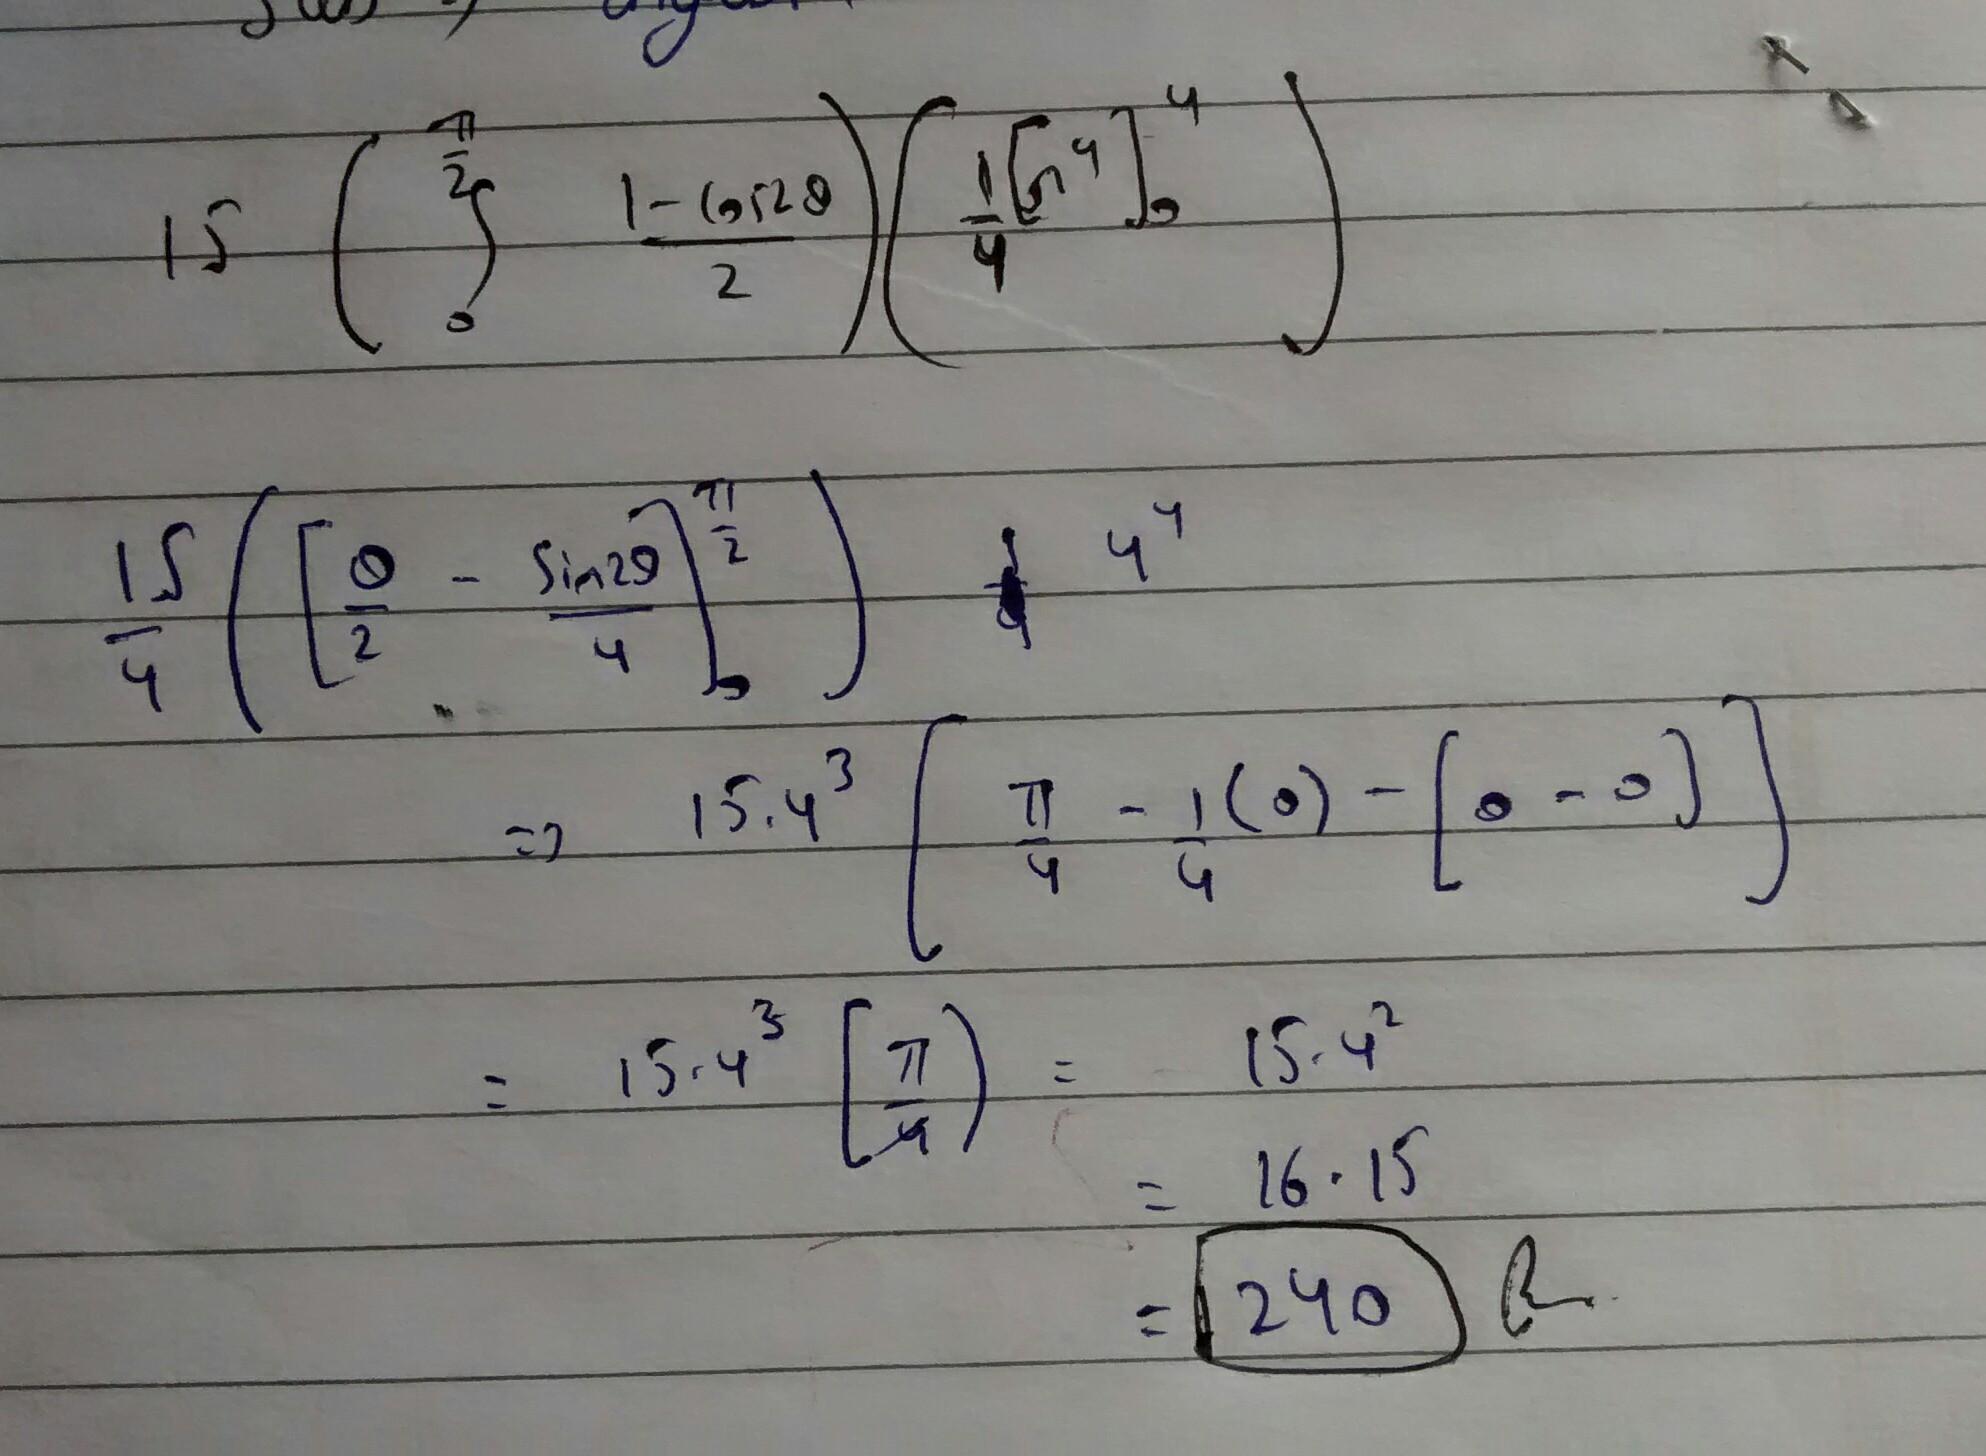 15 ( ∫_0^{π/2} (1 - cos2θ)/2 ) ( 1/4 [r^4]_0^4 )
15/4 ( [θ/2 - sin2θ/4]_0^{π/2} ) 4^4
=> 15.4^3 [ π/4 - 1/4 (0) - [0 - 0] ]
= 15.4^3 [π/4] = 15.4^2
= 16.15
= 240